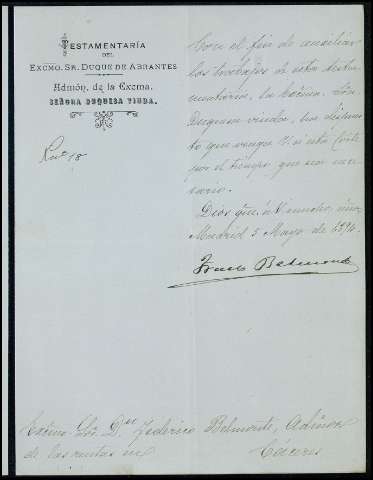 TESTAMENTARÍA
DEL
EXCMO. SR. DUQUE DE ABRANTES
Admón. de la Excma.
SEÑORA DUQUESA VIUDA.
Con el fin de auxiliar
los trabajos de esta testa
mentaría, la Excma. Sra
Duquesa viuda, ha dispues
to que venga V. a esta Corte
por el tiempo que sea nece
sario.
Dios gue. a V. muchos años
Madrid 5 Mayo de 1890.
Belmonte
Federico Belmonte, Admor
de las rentas en Cáceres